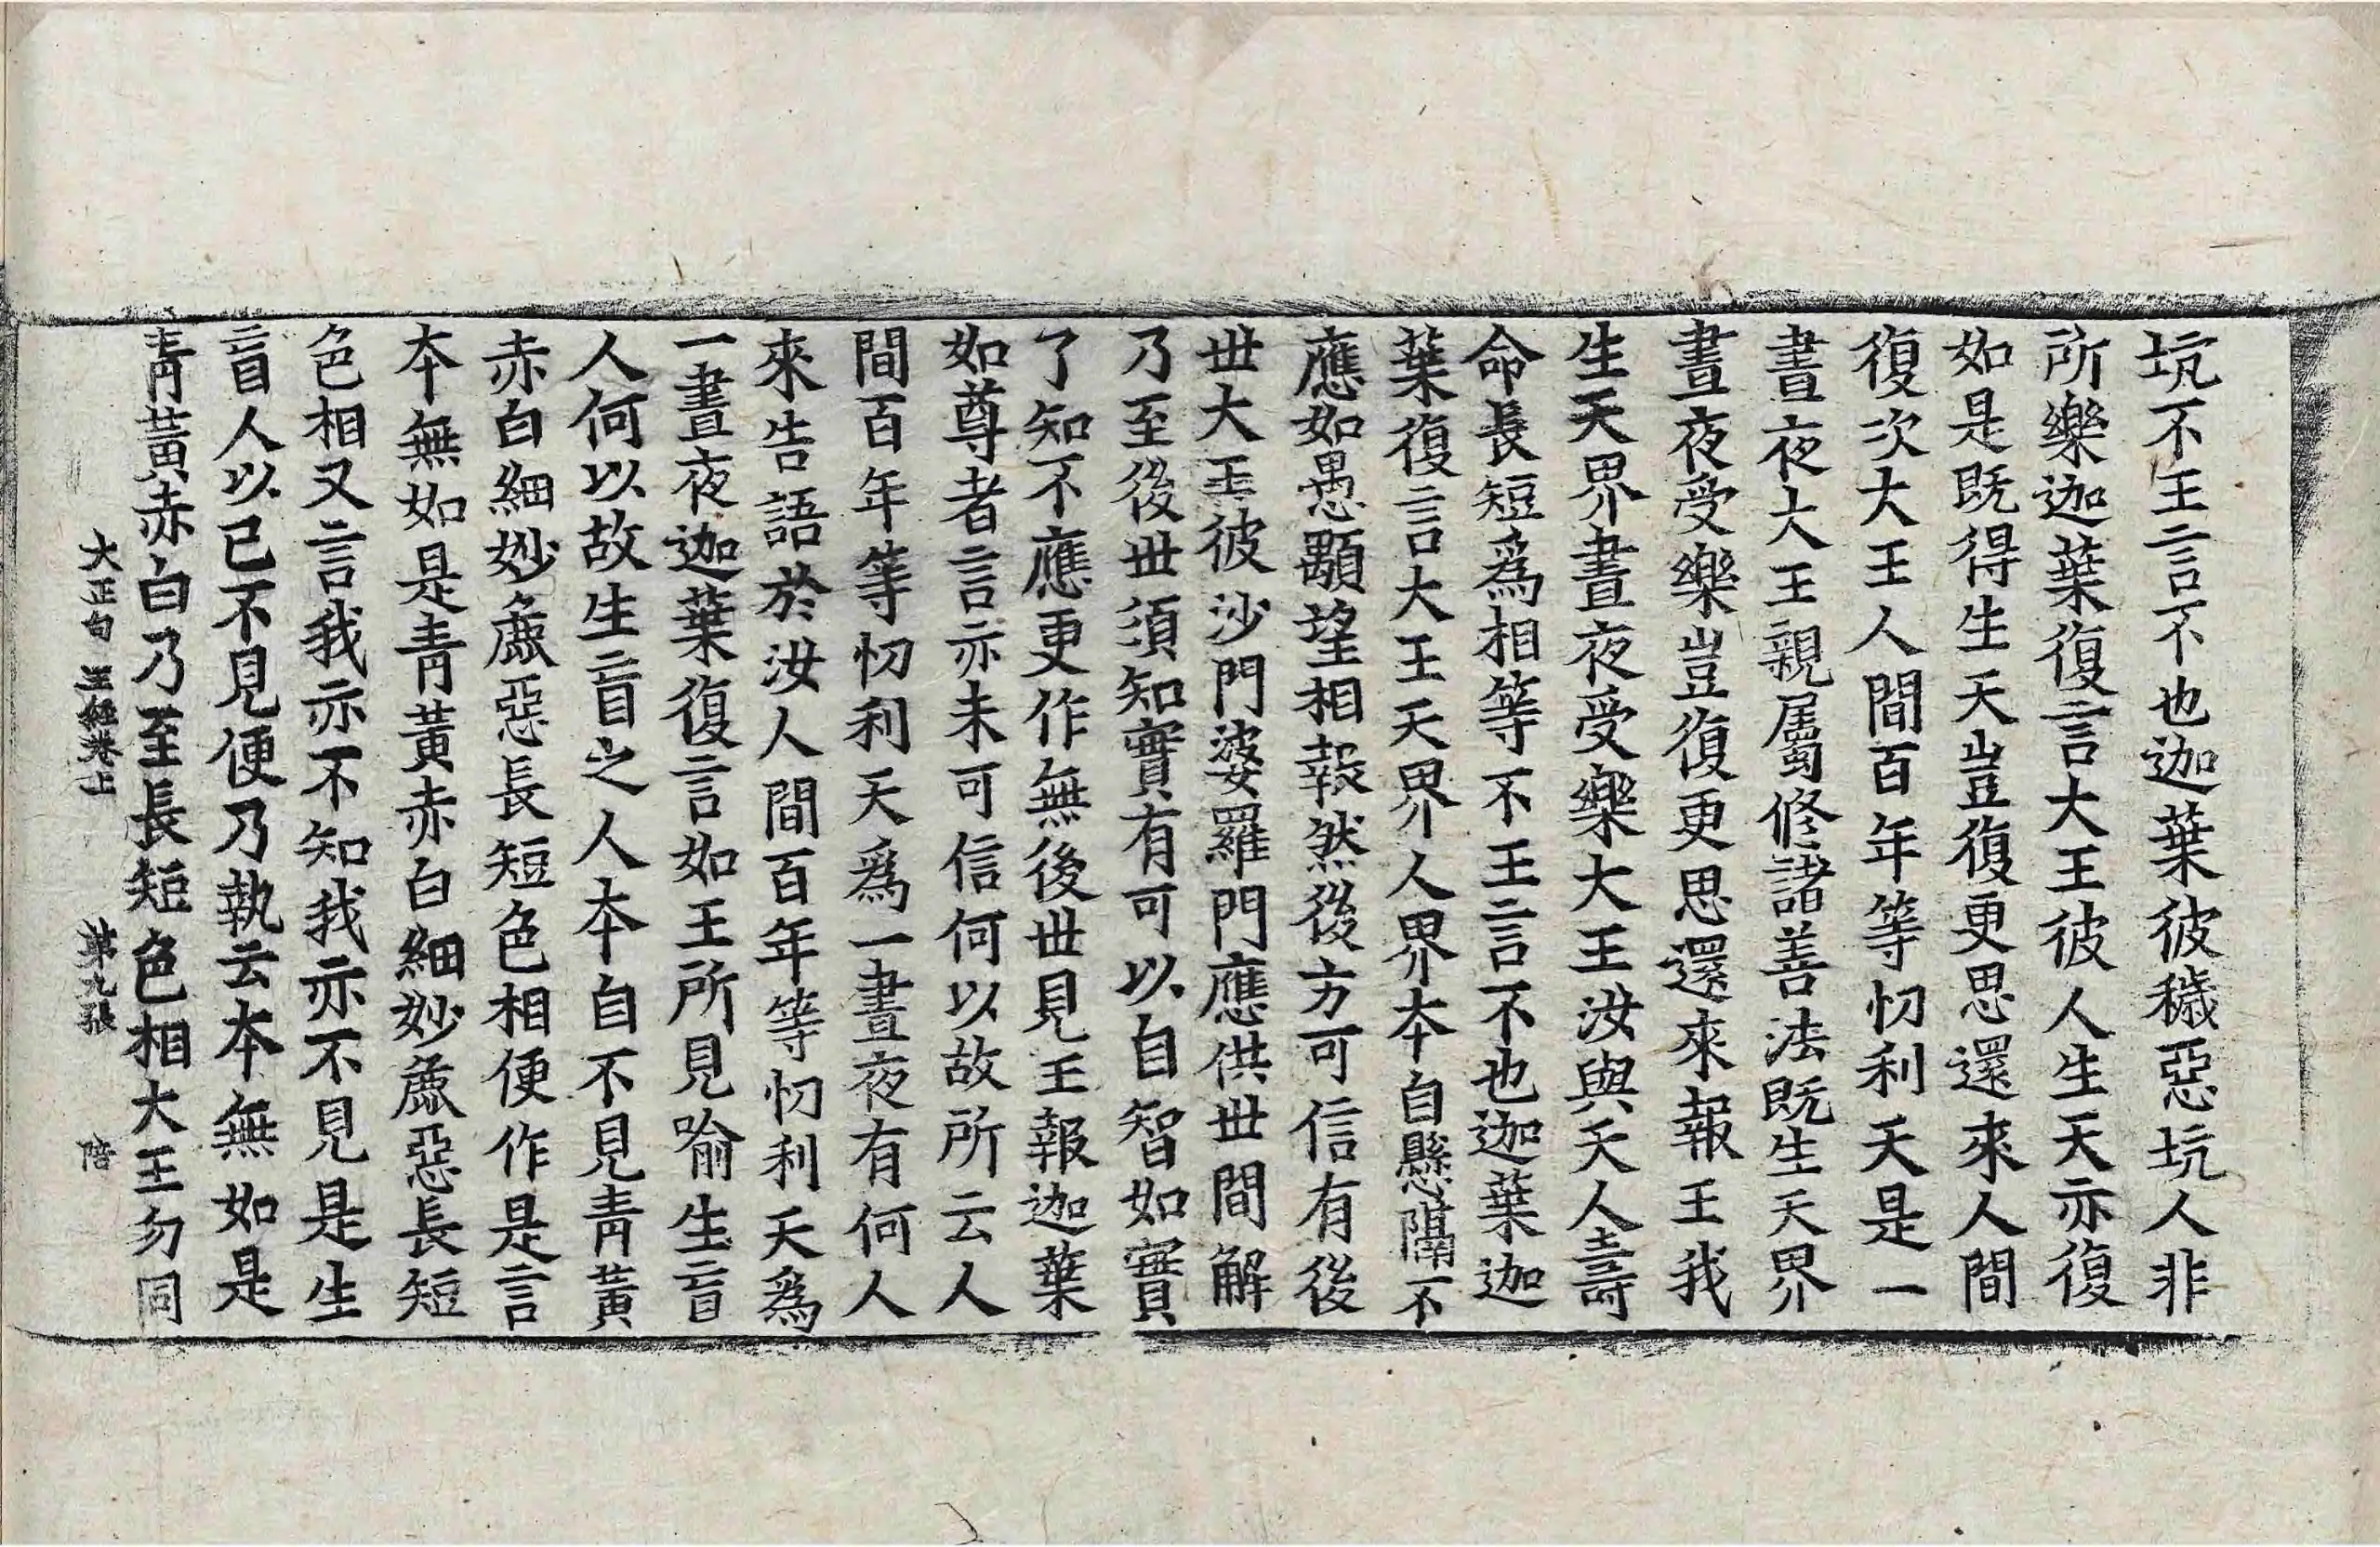 坑不王言不也迦葉彼穢惡坑人非
所樂迦葉復言大王彼人生天亦復
如是既得生天豈復更思還來人間
復次大王人間百年等忉利天是一
晝夜大王親屬修諸善法既生天界
晝夜受樂豈復更思還來報王我
生天界晝夜受樂大王汝與天人壽
命長短爲相等不王言不也迦葉迦
葉復言大王天界人界本自懸隔不
應如愚顒望相報然後方可信有後
世大王彼沙門婆羅門應供世間解
乃至後世須知實有可以自智如實
了知不應更作無後世見王報迦葉
如尊者言亦未可信何以故所云人
間百年等忉利天爲一晝夜有何人
來告語於汝人間百年等忉利天爲
一晝夜迦葉復言如王所見喻生盲
人何以故生盲之人本自不見青黃
赤白細妙麁惡長短色相便作是言
本無如是青黃赤白細妙麁惡長短
色相又言我亦不知我亦不見是生
盲人以已不見便乃執云本無如是
青黃赤白乃至長短色相大王勿同
大正句王經卷上 第九張 陪